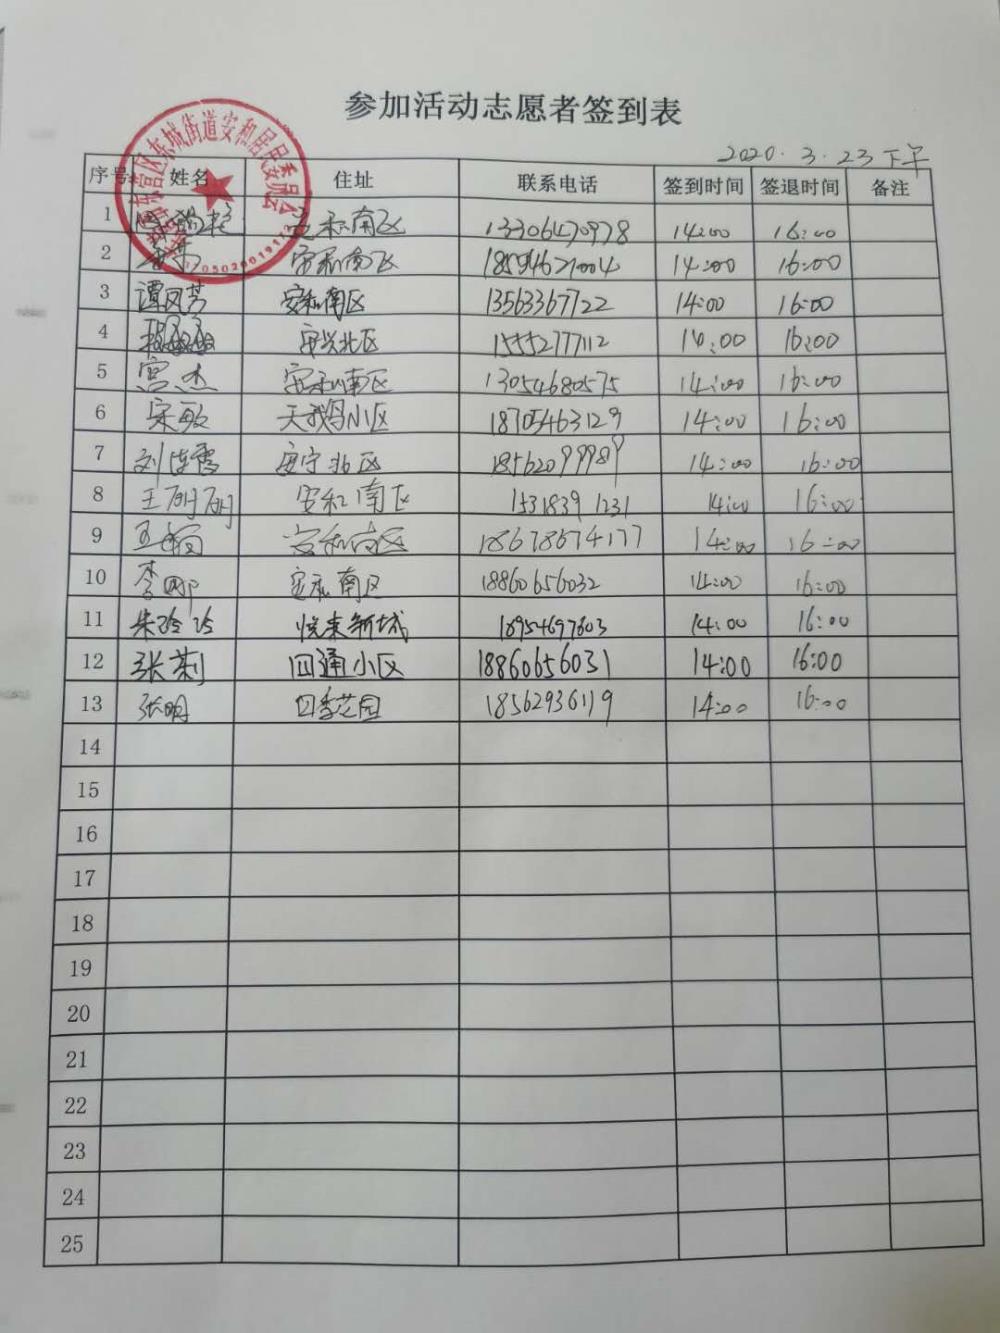 参加活动志愿者签到表
2020.3.23下午
序号 姓名 住址 联系电话 签到时间 签退时间 备注
1 安和南区 13306470978 14:00 16:00
2 安和南区 18594621004 14:00 16:00
3 谭凤芳 安和南区 13563367722 14:00 16:00
4 安兴北区 15552777112 14:00 16:00
5 宫杰 安和南区 13054680575 14:00 16:00
6 宋敏 天鹅湾小区 18705463129 14:00 16:00
7 刘连霞 安宁北区 14:00 16:00
8 王丽丽 安和南区 15318391231 14:00 16:00
9 安和南区 18678674177 14:00 16:00
10 李娜 安和南区 18860656032 14:00 16:00
11 朱玲玲 悦来新城 18954697603 14:00 16:00
12 张莉 四通小区 18860656031 14:00 16:00
13 张明 四季花园 18562936119 14:00 16:00
14
15
16
17
18
19
20
21
22
23
24
25